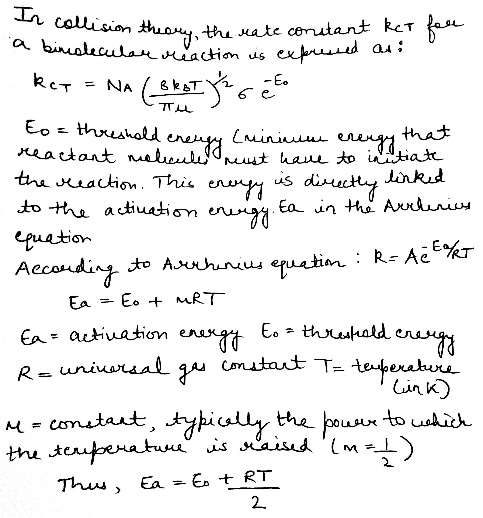 In collision theory, the rate constant kCT for
a bimolecular reaction is expressed as:
kCT = NA (8kBT/πμ)^1/2 σ e^-E0
E0 = threshold energy (minimum energy that
reactant molecules must have to initiate
the reaction. This energy is directly linked
to the activation energy. Ea in the Arrhenius
equation
According to Arrhenius equation : k = Ae^-Ea/RT
Ea = E0 + mRT
Ea = activation energy E0 = threshold energy
R = universal gas constant T = temperature
(in K)
m = constant, typically the power to which
the temperature is raised (m = 1/2)
Thus, Ea = E0 + RT/2